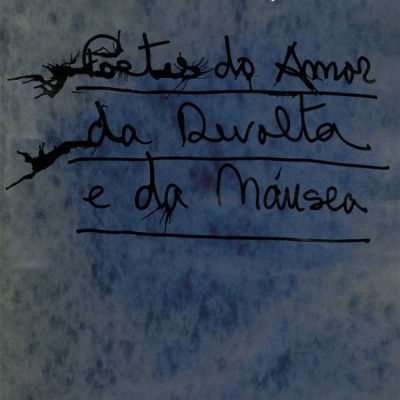 Poetas do Amor
da Revolta
e da Náusea